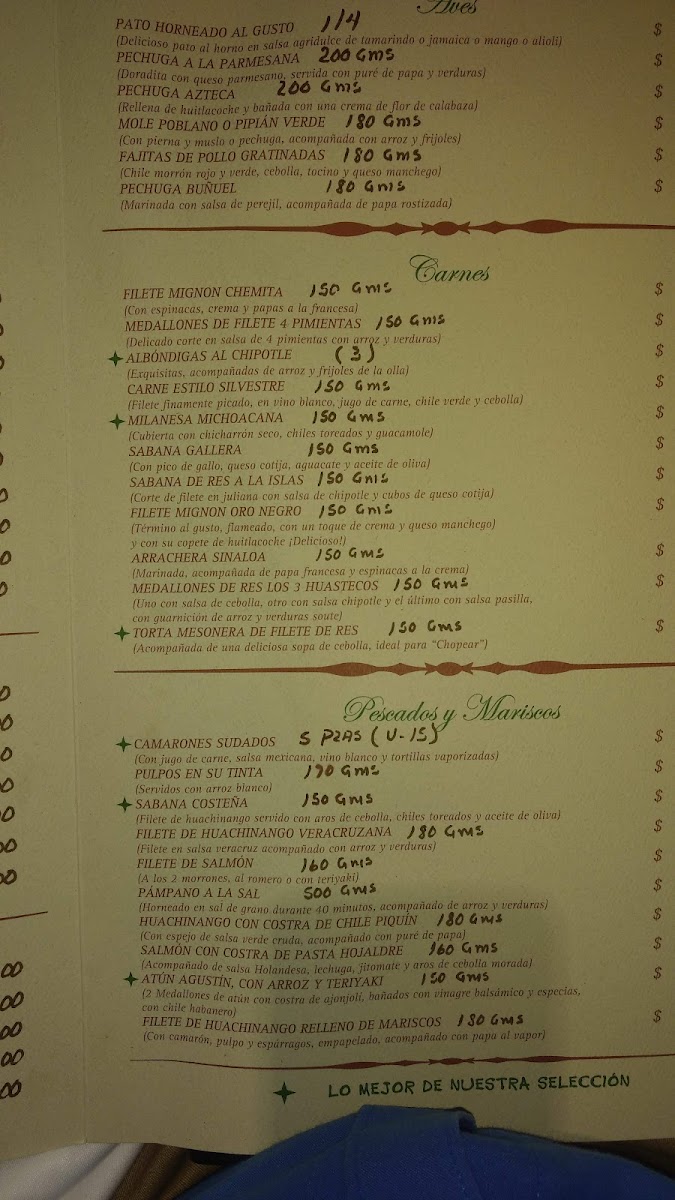 Aves
PATO HORNEADO AL GUSTO 1/4 $
(Delicioso pato al horno en salsa agridulce de tamarindo o jamaica o mango o alioli)
PECHUGA A LA PARMESANA 200 Gms $
(Doradita con queso parmesano, servida con puré de papa y verduras)
PECHUGA AZTECA 200 Gms $
(Rellena de huitlacoche y bañada con una crema de flor de calabaza)
MOLE POBLANO O PIPIÁN VERDE 180 Gms $
(Con pierna y muslo o pechuga, acompañada con arroz y frijoles)
FAJITAS DE POLLO GRATINADAS 180 GMS $
(Chile morrón rojo y verde, cebolla, tocino y queso manchego)
PECHUGA BUÑUEL 180 Gms $
(Marinada con salsa de perejil, acompañada de papa rostizada)
Carnes
FILETE MIGNON CHEMITA 150 Gms $
(Con espinacas, crema y papas a la francesa)
MEDALLONES DE FILETE 4 PIMIENTAS 150 Gms $
(Delicado corte en salsa de 4 pimientas con arroz y verduras)
ALBÓNDIGAS AL CHIPOTLE (3) $
(Exquisitas, acompañadas de arroz y frijoles de la olla)
CARNE ESTILO SILVESTRE 150 Gms $
(Filete finamente picado, en vino blanco, jugo de carne, chile verde y cebolla)
MILANESA MICHOACANA 150 Gms $
(Cubierta con chicharrón seco, chiles toreados y guacamole)
SABANA GALLERA 150 Gms $
(Con pico de gallo, queso cotija, aguacate y aceite de oliva)
SABANA DE RES A LA ISLAS 150 Gms $
(Corte de filete en juliana con salsa de chipotle y cubos de queso cotija)
FILETE MIGNON ORO NEGRO 150 Gms $
(Término al gusto, flameado, con un toque de crema y queso manchego)
y con su copete de huitlacoche ¡Delicioso!)
ARRACHERA SINALOA 150 Gms $
(Marinada, acompañada de papa francesa y espinacas a la crema)
MEDALLONES DE RES LOS 3 HUASTECOS 150 Gms $
(Uno con salsa de cebolla, otro con salsa chipotle y el último con salsa pasilla,
con guarnición de arroz y verduras soute)
TORTA MESONERA DE FILETE DE RES 150 Gms $
(Acompañada de una deliciosa sopa de cebolla, ideal para "Chopear")
Pescados y Mariscos
CAMARONES SUDADOS 5 PZAS (U-15) $
(Con jugo de carne, salsa mexicana, vino blanco y tortillas vaporizadas)
PULPOS EN SU TINTA 170 Gms $
(Servidos con arroz blanco)
SABANA COSTEÑA 150 Gms $
(Filete de huachinango servido con aros de cebolla, chiles toreados y aceite de oliva)
FILETE DE HUACHINANGO VERACRUZANA 180 GMS $
(Filete en salsa veracruz acompañado con arroz y verduras)
FILETE DE SALMÓN 160 Gms $
(A los 2 morrones, al romero o con teriyaki)
PÁMPANO A LA SAL 500 GMS $
(Horneado en sal de grano durante 40 minutos, acompañado de arroz y verduras)
HUACHINANGO CON COSTRA DE CHILE PIQUÍN 180 Gms $
(Con espejo de salsa verde cruda, acompañado con puré de papa)
SALMÓN CON COSTRA DE PASTA HOJALDRE 160 Gms $
(Acompañado de salsa Holandesa, lechuga, jitomate y aros de cebolla morada)
ATÚN AGUSTÍN, CON ARROZ Y TERIYAKI 150 Gms $
(2 Medallones de atún con costra de ajonjolí, bañados con vinagre balsámico y especias,
con chile habanero)
FILETE DE HUACHINANGO RELLENO DE MARISCOS 180 Gms $
(Con camarón, pulpo y espárragos, empapelado, acompañado con papa al vapor)
LO MEJOR DE NUESTRA SELECCIÓN